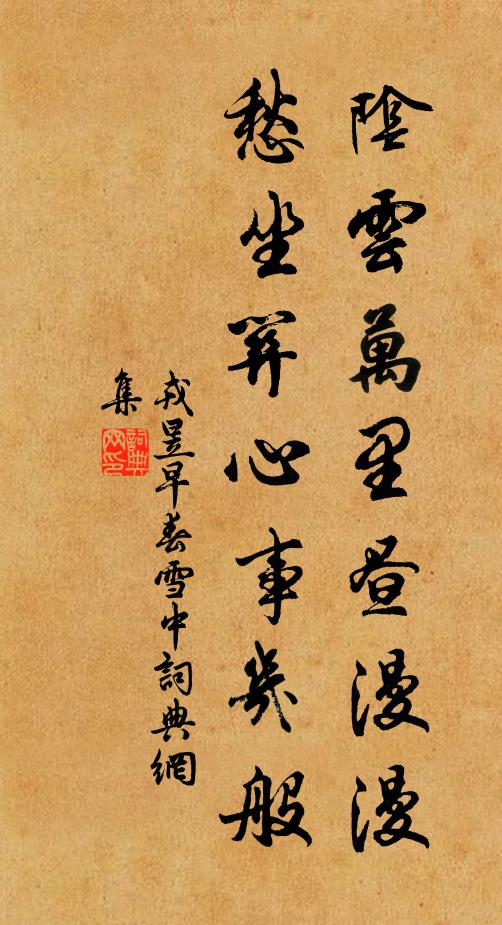 陰雲萬里晝漫漫
愁坐關心事幾般
戎昱早春雪中詞典網
集
詞典网印